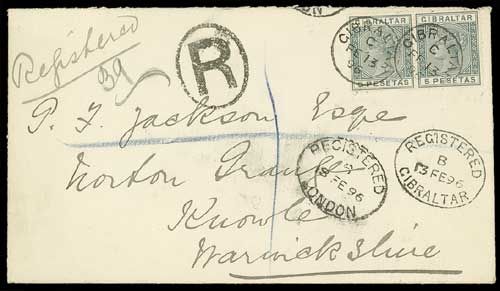 Registered
39
R
GIBRALTAR
GIBRALTAR
5 PESETAS
5 PESETAS
GIBRALTAR
C
FE 13
96
GIBRALTAR
C
FE 13
P. F. Jackson Esqe
Norton Grange
Knowle
Warwickshire
REGISTERED
FE 96
LONDON
REGISTERED
B
13 FE 96
GIBRALTAR